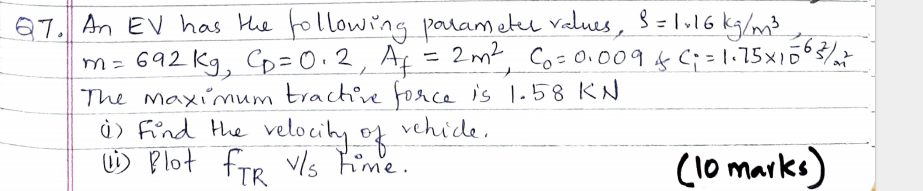 Q7. An EV has the following parameter values, ρ = 1.16 kg/m³,
m = 692 kg, C_D = 0.2, A_f = 2m², C₀ = 0.009 & C₁ = 1.75×10⁻⁶ s²/m²
The maximum tractive force is 1.58 KN
i) Find the velocity of vehicle.
(ii) Plot f_TR v/s time. (10 marks)